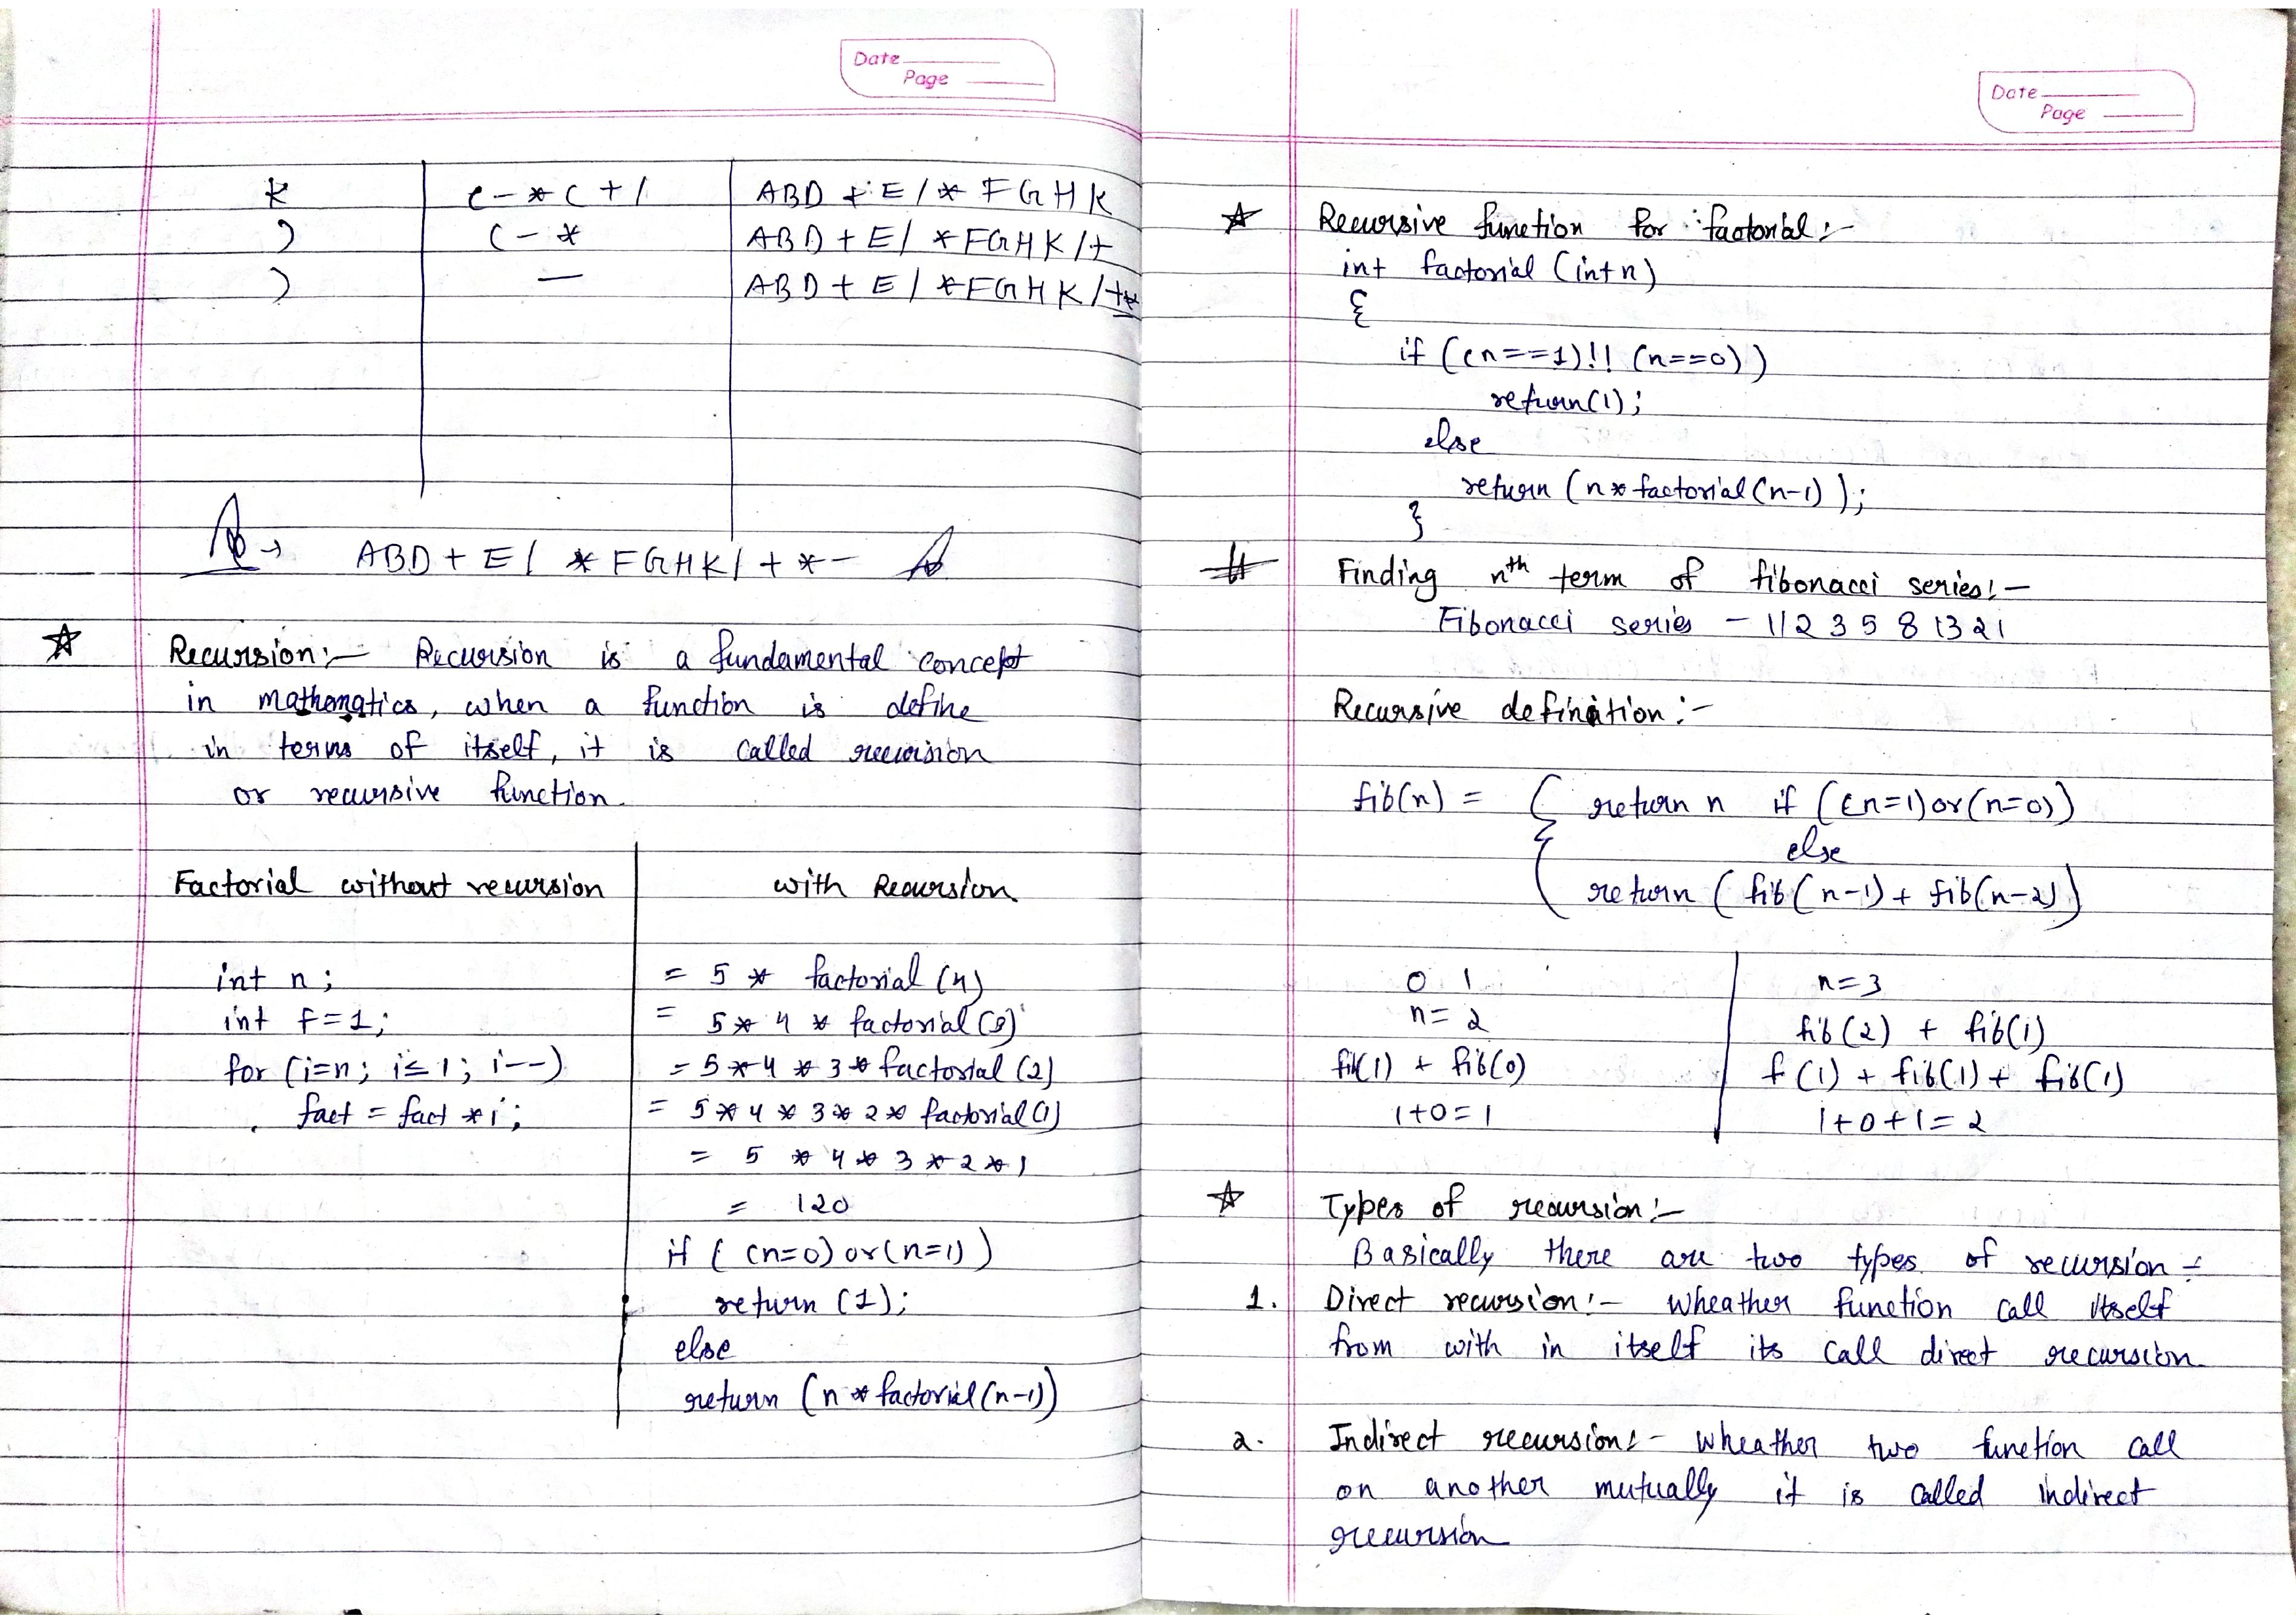 Date
Page
k ( - * ( + / ABD + E / * F G H K
) ( - * ABD + E / * FGHK / +
) — ABD + E / * FGHK / + *-
→ ABD + E / * FGHK / + * -
Recursion:- Recursion is a fundamental concept
in mathematics, when a function is define
in terms of itself, it is called recursion
or recursive function.
Factorial without recursion
int n;
int f=1;
for (i=n; i≤1; i--)
fact = fact *i;
with Recursion.
= 5 * factorial (4)
= 5 * 4 * factorial (3)
= 5 * 4 * 3 * factorial (2)
= 5 * 4 * 3 * 2 * factorial (1)
= 5 * 4 * 3 * 2 * 1
= 120
if ( (n=0) or (n=1) )
return (1);
else
return (n * factorial (n-1))
Date
Page
Recursive function for factorial:-
int factorial (int n)
{
if ((n==1)!! (n==0))
return(1);
else
return (n * factorial (n-1) );
}
# Finding nth term of fibonacci series:-
Fibonacci series - 1 1 2 3 5 8 13 21
Recursive definition:-
fib(n) = { return n if ((n=1) or (n=0))
else
return ( fib(n-1) + fib(n-2) )
0 1
n= 2
fib(1) + fib(0)
1+0=1
n=3
fib(2) + fib(1)
f(1) + fib(1) + fib(1)
1+0+1=2
Types of recursion:-
Basically there are two types of recursion -
1. Direct recursion:- Wheather function call itself
from with in itself its call direct recursion
2. Indirect recursion:- Wheather two function call
on another mutually it is called indirect
recursion